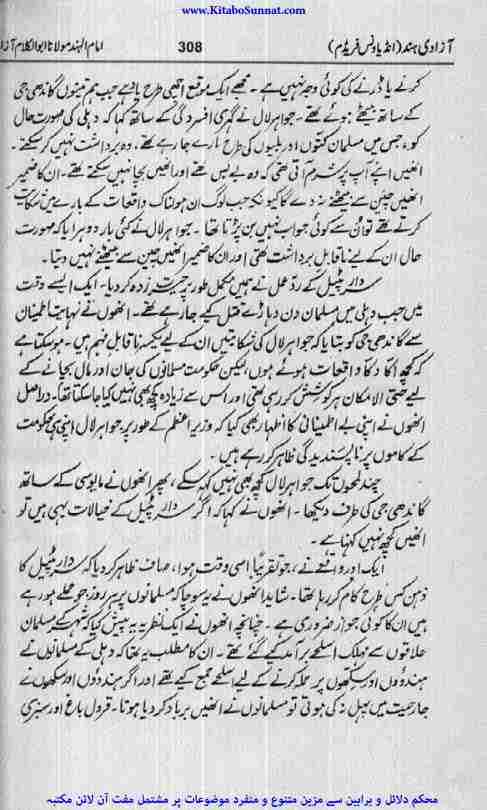 www.KitaboSunnat.com
آزادی ہند (انڈیا ونس فریڈم) 308 امام الہند مولانا ابوالکلام آزاد
کرنے یا ڈرنے کی کوئی وجہ نہیں ہے ۔ مجھے ایک موقع اچھی طرح یاد ہے جب ہم تینوں گاندھی جی
کے ساتھ بیٹھے ہوئے تھے ۔ جواہر لال نے گہری افسردگی کے ساتھ کہا کہ دہلی کی صورت حال
کو، جس میں مسلمان کتوں اور بلیوں کی طرح مارے جا رہے تھے، وہ برداشت نہیں کر سکتے ۔
انھیں اپنے آپ پر شرم آتی تھی کہ وہ بے بس تھے اور انھیں بچا نہیں سکتے تھے ۔ ان کا ضمیر
انھیں چین سے بیٹھنے نہ دے گا کیونکہ جب لوگ ان ہولناک واقعات کے بارے میں شکایت
کرتے تھے تو ان سے کوئی جواب نہیں بن پڑتا تھا ۔ جواہر لال نے کئی بار دوہرایا کہ صورت
حال ان کے لیے ناقابل برداشت تھی اور ان کا ضمیر انھیں چین سے بیٹھنے نہیں دیتا ۔
سردار پٹیل کے ردّعمل نے ہمیں مکمل طور پر حیرت زدہ کر دیا ۔ ایک ایسے وقت
میں جب دہلی میں مسلمان دن دہاڑے قتل کیے جا رہے تھے ۔ انھوں نے نہایت اطمینان
سے گاندھی جی کو بتایا کہ جواہر لال کی شکایتیں ان کے لیے یکسر ناقابل فہم ہیں ۔ ہو سکتا ہے
کہ کچھ اکا دکا واقعات ہوئے ہوں، لیکن حکومت مسلمانوں کی جان اور مال بچانے کے
لیے حتی الامکان ہر کوشش کر رہی تھی اور اس سے زیادہ کچھ بھی نہیں کیا جا سکتا تھا ۔ دراصل
انھوں نے اپنی بے اطمینانی کا اظہار بھی کیا کہ وزیر اعظم کے طور پر جواہر لال اپنی ہی حکومت
کے کاموں پر ناپسندیدگی ظاہر کر رہے ہیں ۔
چند لمحوں تک جواہر لال کچھ بھی نہیں کہہ سکے، پھر انھوں نے مایوسی کے ساتھ
گاندھی جی کی طرف دیکھا ۔ انھوں نے کہا کہ اگر سردار پٹیل کے خیالات یہی ہیں تو
انھیں کچھ نہیں کہنا ہے ۔
ایک اور واقعے نے، جو تقریباً اسی وقت ہوا، صاف ظاہر کر دیا کہ سردار پٹیل کا
ذہن کس طرح کام کر رہا تھا ۔ شاید انھوں نے یہ سوچا کہ مسلمانوں پر ہر روز جو حملے ہو رہے
ہیں ان کا کوئی جواز ضروری ہے ۔ چنانچہ انھوں نے ایک نظریہ یہ پیش کیا کہ شہر کے مسلمان
علاقوں سے مہلک اسلحے برآمد کیے گئے تھے ۔ ان کا مطلب یہ تھا کہ دہلی کے مسلمانوں نے
ہندوؤں اور سکھوں پر حملہ کرنے کے لیے اسلحے جمع کیے تھے اور اگر ہندوؤں اور سکھوں نے
جارحیت میں پہل نہ کی ہوتی تو مسلمانوں نے انھیں برباد کر دیا ہوتا ۔ قرول باغ اور سبزی
محکم دلائل و براہین سے مزین متنوع و منفرد موضوعات پر مشتمل مفت آن لائن مکتبہ